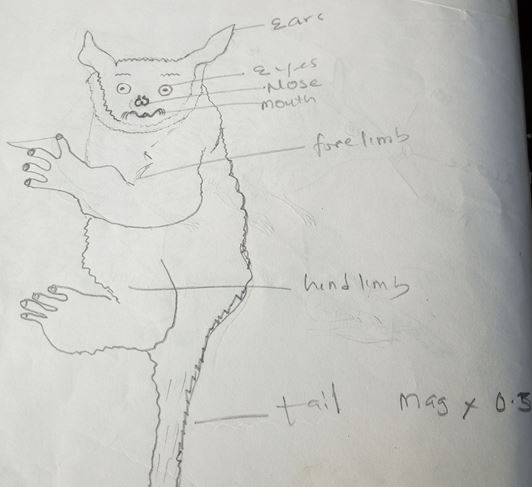 Ears
Eyes
Nose
mouth
forelimb
hindlimb
tail
Mag x 0.5